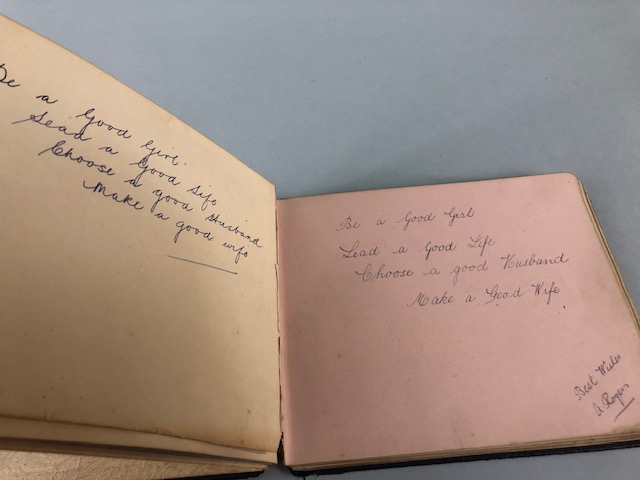 Be a Good Girl.
Lead a Good Life
Choose a good Husband
Make a good wife
Be a Good Girl
Lead a Good Life
Choose a good Husband
Make a Good Wife
Best Wishes
A Rogers